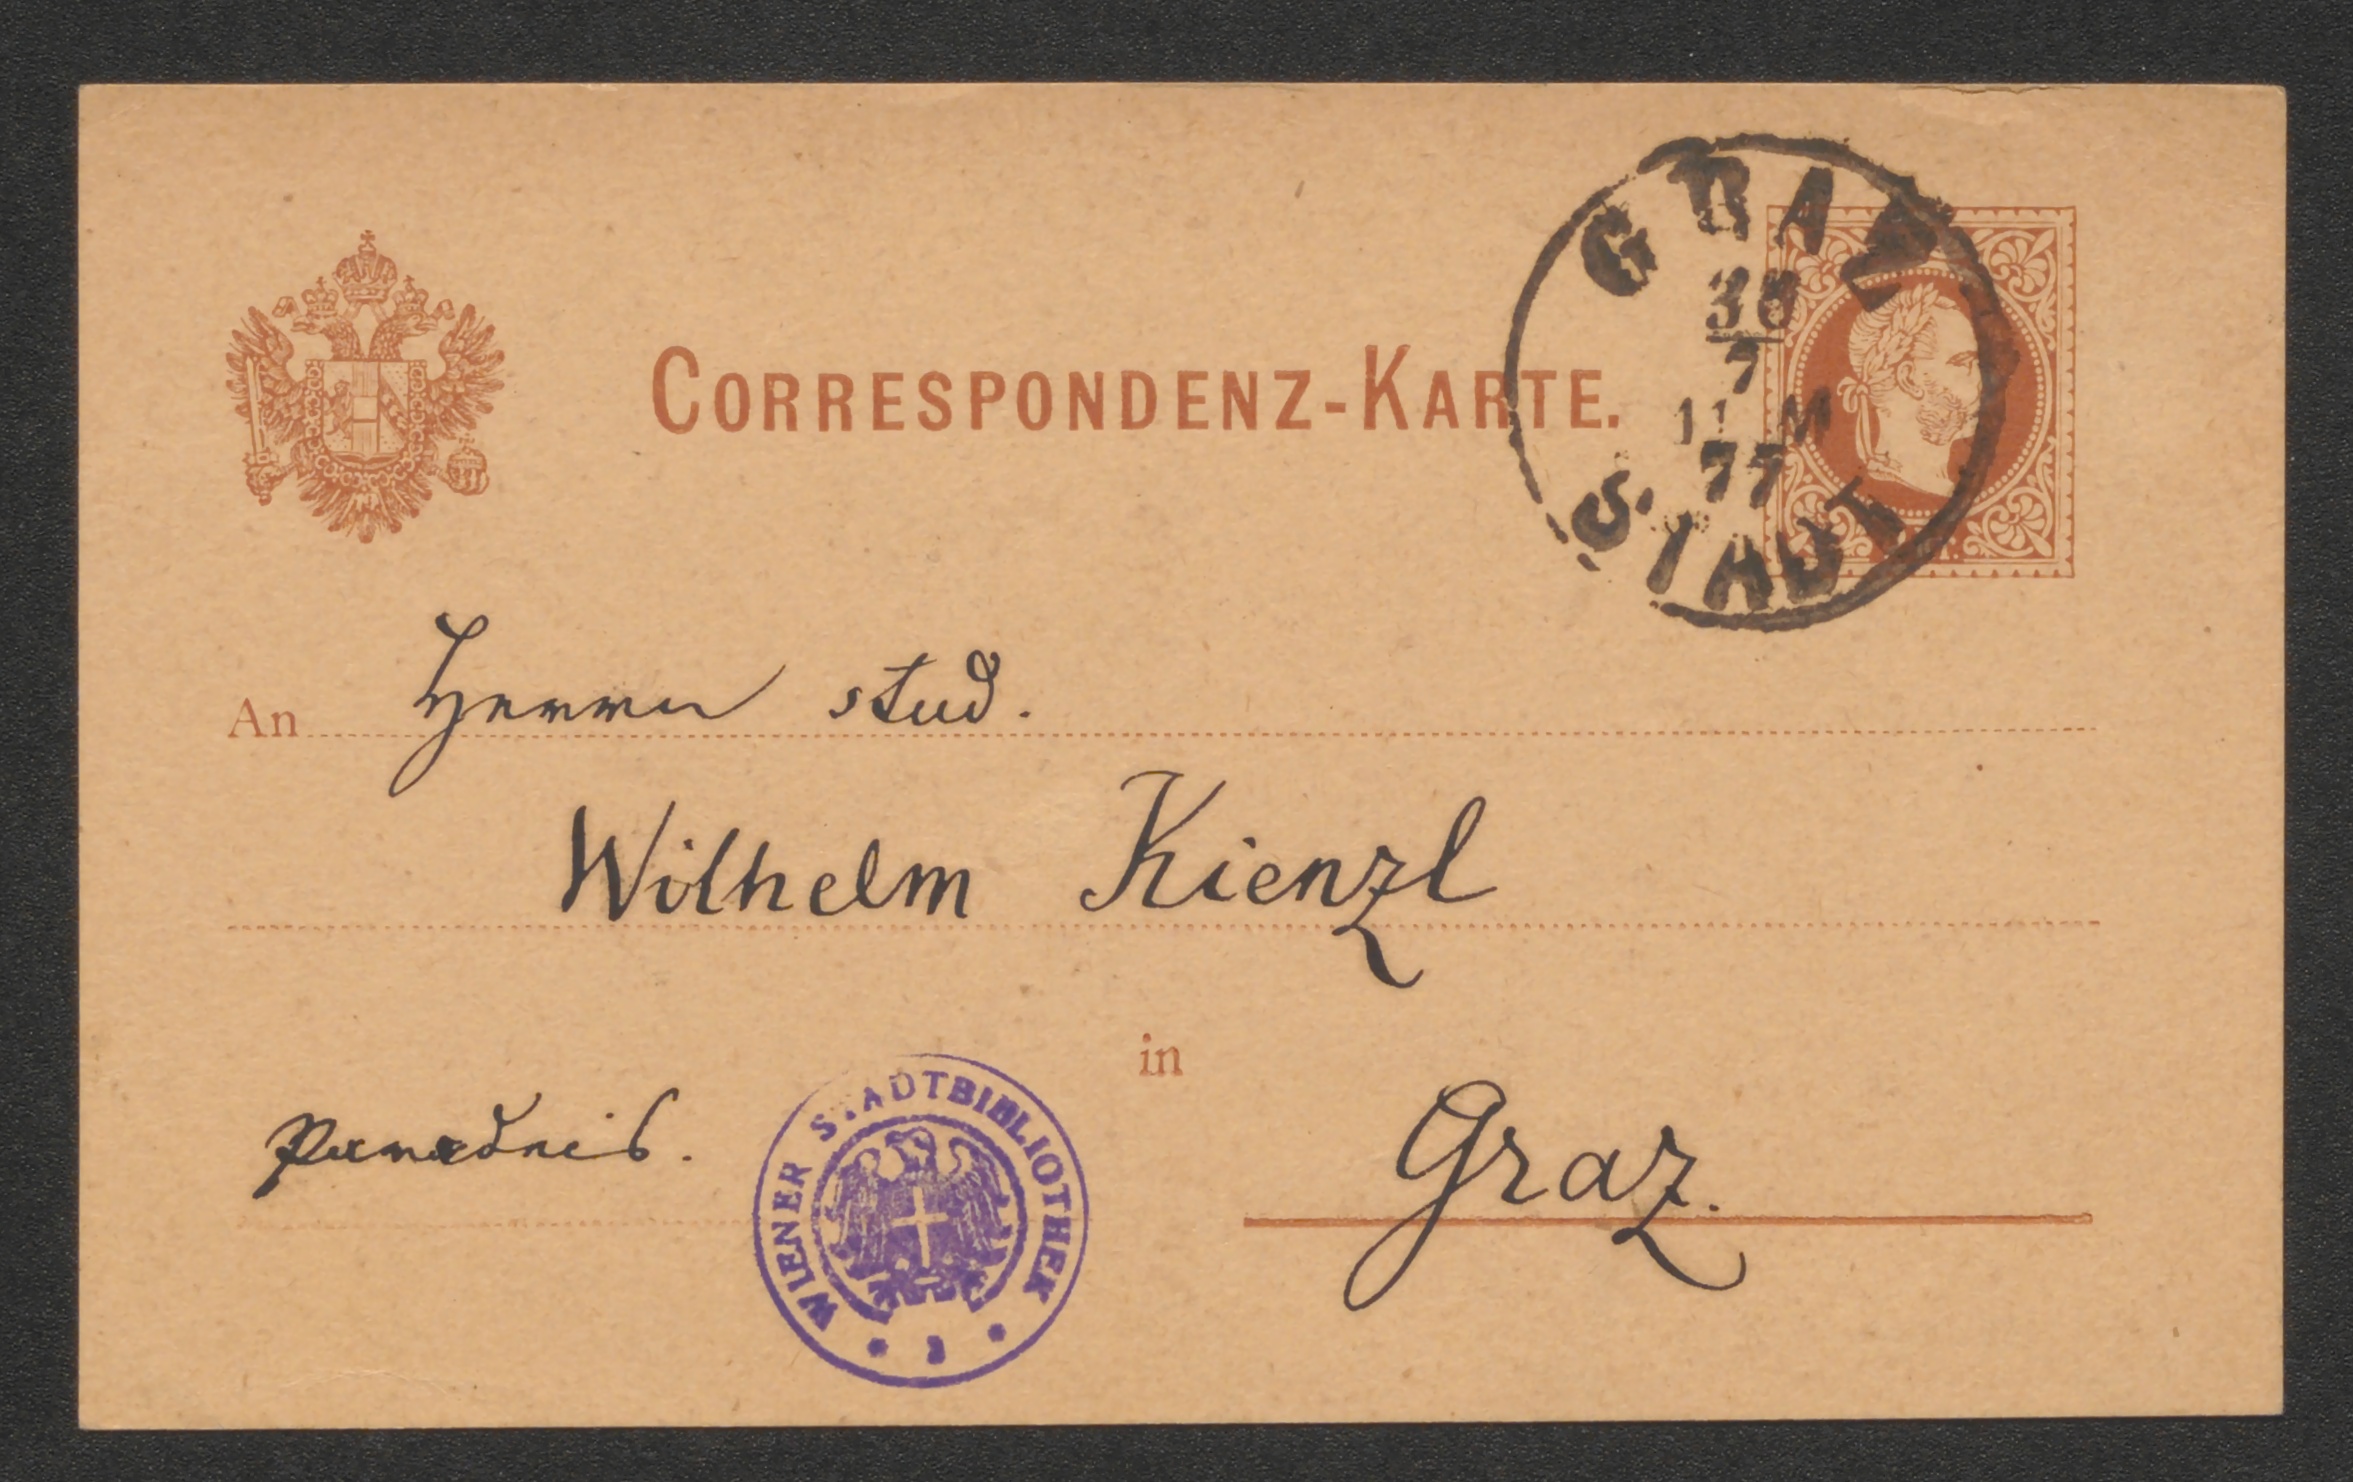 CORRESPONDENZ-KARTE.
GRAZ
30
7
11 M
77
STADT
An Herrn stud.
Wilhelm Kienzl
in
Paradeis.
Graz.
WIENER STADTBIBLIOTHEK